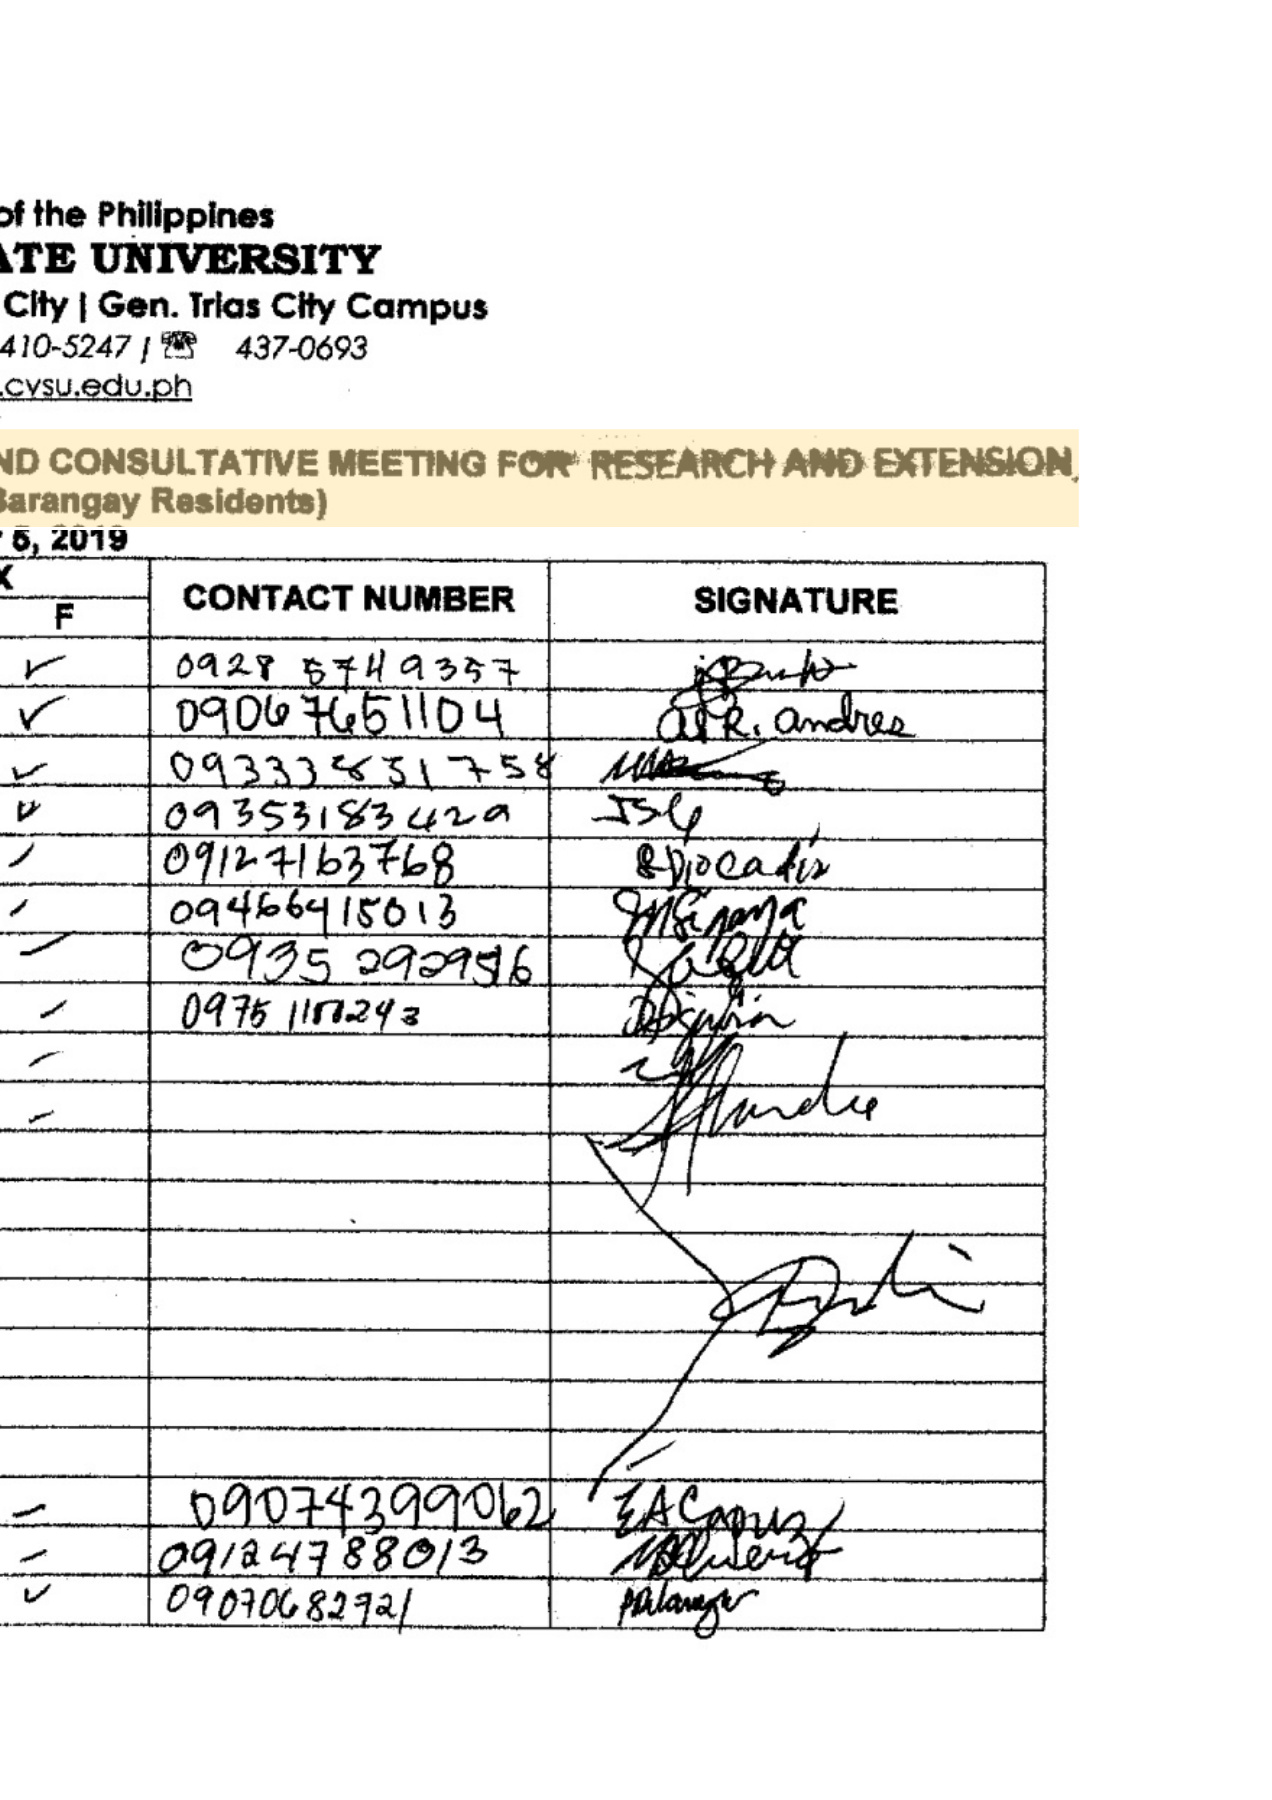 of the Philippines
ATE UNIVERSITY
City | Gen. Trias City Campus
410-5247 / ☏ 437-0693
.cvsu.edu.ph
ND CONSULTATIVE MEETING FOR RESEARCH AND EXTENSION,
Barangay Residents)
5, 2019
X
F CONTACT NUMBER SIGNATURE
✓ 0928 5749357
✓ 09067651104 R. andres
✓ 09333831758
✓ 09353183429
09127163768
09466415013
0935 2929516
0975
09074399062 EACapuz
09124788013
✓ 09070682721